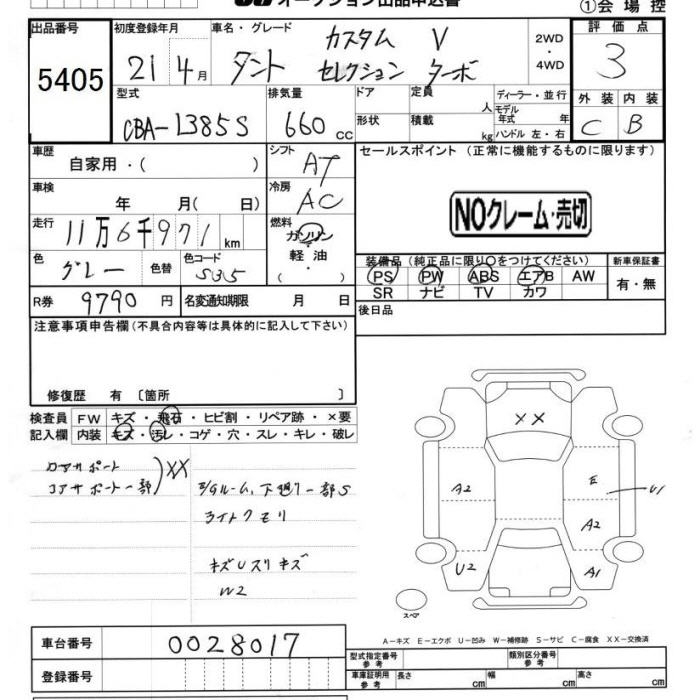 オークション出品申込書
①会場控
出品番号 初度登録年月 車名・グレード 2WD・4WD 評価点
5405 21 4月 タント カスタム V セレクション ターボ 3
型式 排気量 ドア 定員 人 ディーラー・並行 外装 内装
CBA-L385S 660cc 形状 積載 kg モデル年式 年 ハンドル 左・右 C B
車歴 自家用・( ) シフト AT セールスポイント (正常に機能するものに限ります)
車検 年 月( 日) 冷房 AC
NOクレーム・売切
走行 11万6千971km 燃料 ガソリン・軽油・( )
色 グレー 色替 色コード S35
装備品(純正品に限り○をつけてください) 新車保証書
PS PW ABS エアB AW 有・無
SR ナビ TV カワ
R券 9790円 名変通知期限 月 日 後日品
注意事項申告欄(不具合内容等は具体的に記入して下さい)
修復歴 有〔箇所 〕
検査員記入欄 FW キズ・飛石・ヒビ割・リペア跡・×要
内装 キズ・汚レ・コゲ・穴・スレ・キレ・破レ
ロアサポート
コアサポート一部)XX
E/Gルーム、下廻り一部S
ライトクモリ
キズUスリキズ
W2
XX
A2 E U1
A2
U2 A1
スペア
A-キズ E-エクボ U-凹み W-補修跡 S-サビ C-腐食 XX-交換済
車台番号 0028017 型式指定番号 参考 類別区分番号 参考
登録番号 車庫証明用 参考 長さ cm 幅 cm 高さ cm